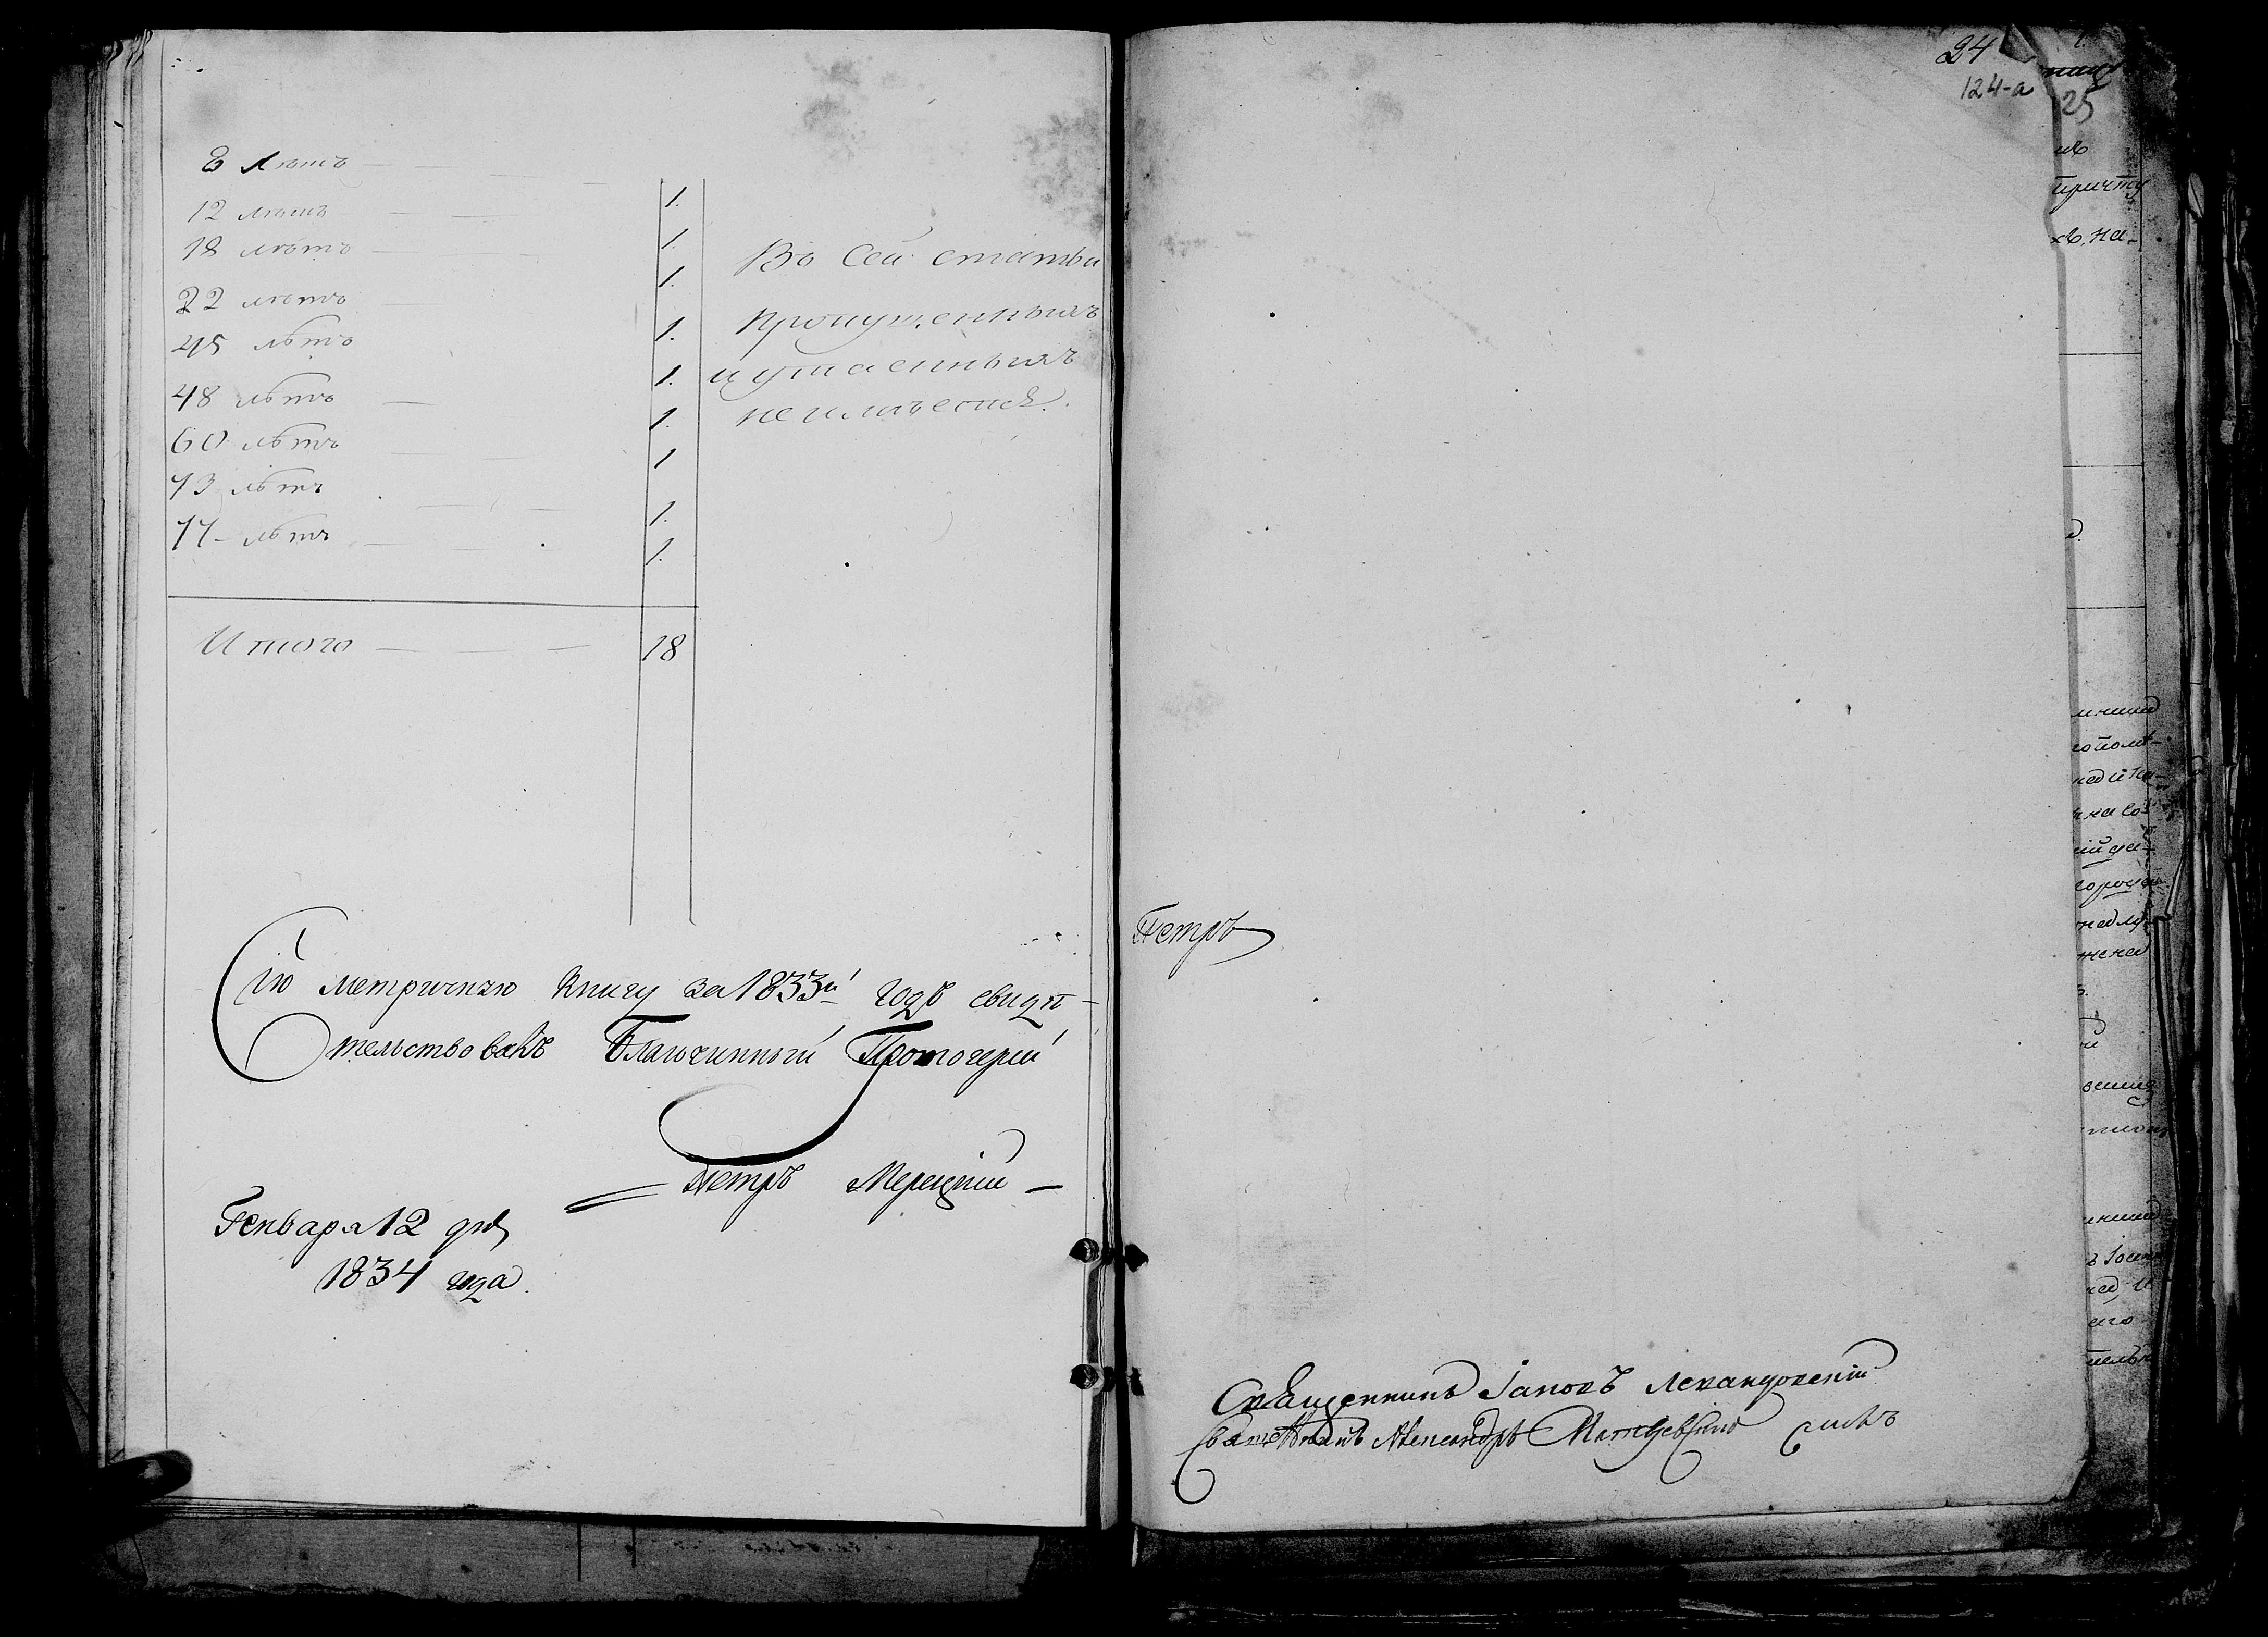 8 лѣтъ — — — — 1.
12 лѣтъ — — 1.
18 лѣтъ — — 1.
22 лѣтъ — 1.
45 лѣтъ 1.
48 лѣтъ — 1.
60 лѣтъ — — 1
73 лѣтъ — — 1.
77 лѣтъ — — 1.
Итого — — — 18
Въ сей статьи
пропущенныхъ
и утаенныхъ
не имѣется.
Сію метричную книгу за 1833й годъ свидѣ-
тельствовалъ Благочинный Протоіерей
Петръ Мерецкий —
Генваря 12 дня
1834 года.
24
124-а
Петръ
Священникъ Іаковъ
Александръ
25
причту